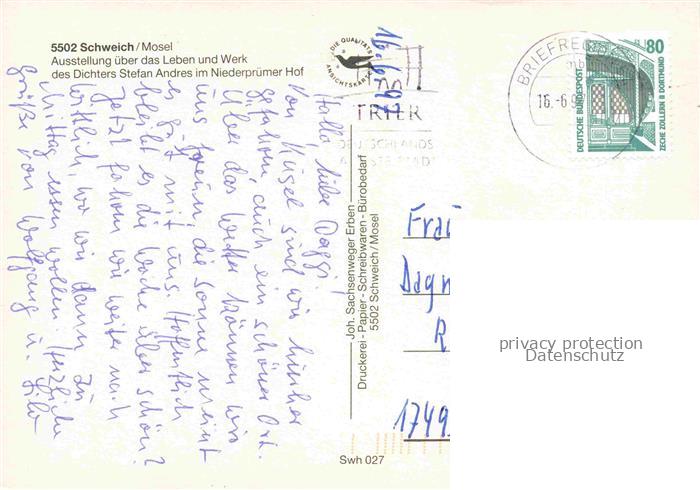 5502 Schweich/Mosel
Ausstellung über das Leben und Werk
des Dichters Stefan Andres im Niederprümer Hof
DIE QUALITÄTS
ANSICHTSKARTE
16.6.97
TRIER
DEUTSCHLANDS
ÄLTESTE STADT
BRIEFREG
16.-6.9
80
DEUTSCHE BUNDESPOST
ZECHE ZOLLERN II DORTMUND
Hallo, liebe Daggi!
Von Küsel sind wir hierher
gefahren, auch ein schöner Ort.
Über das Wetter können wir
uns freuen, die Sonne meint
es gut mit uns. Hoffentlich
bleibt es die Woche über schön?
Jetzt fahren wir weiter nach
Wittlich, wo wir dann zu
Mittag essen wollen. Herzliche
Grüße von Wolfgang u.
Joh. Sachsenweger Erben
Druckerei - Papier - Schreibwaren - Bürobedarf
5502 Schweich/Mosel
Frau
Dagm
R
1749
Swh 027
privacy protection
Datenschutz